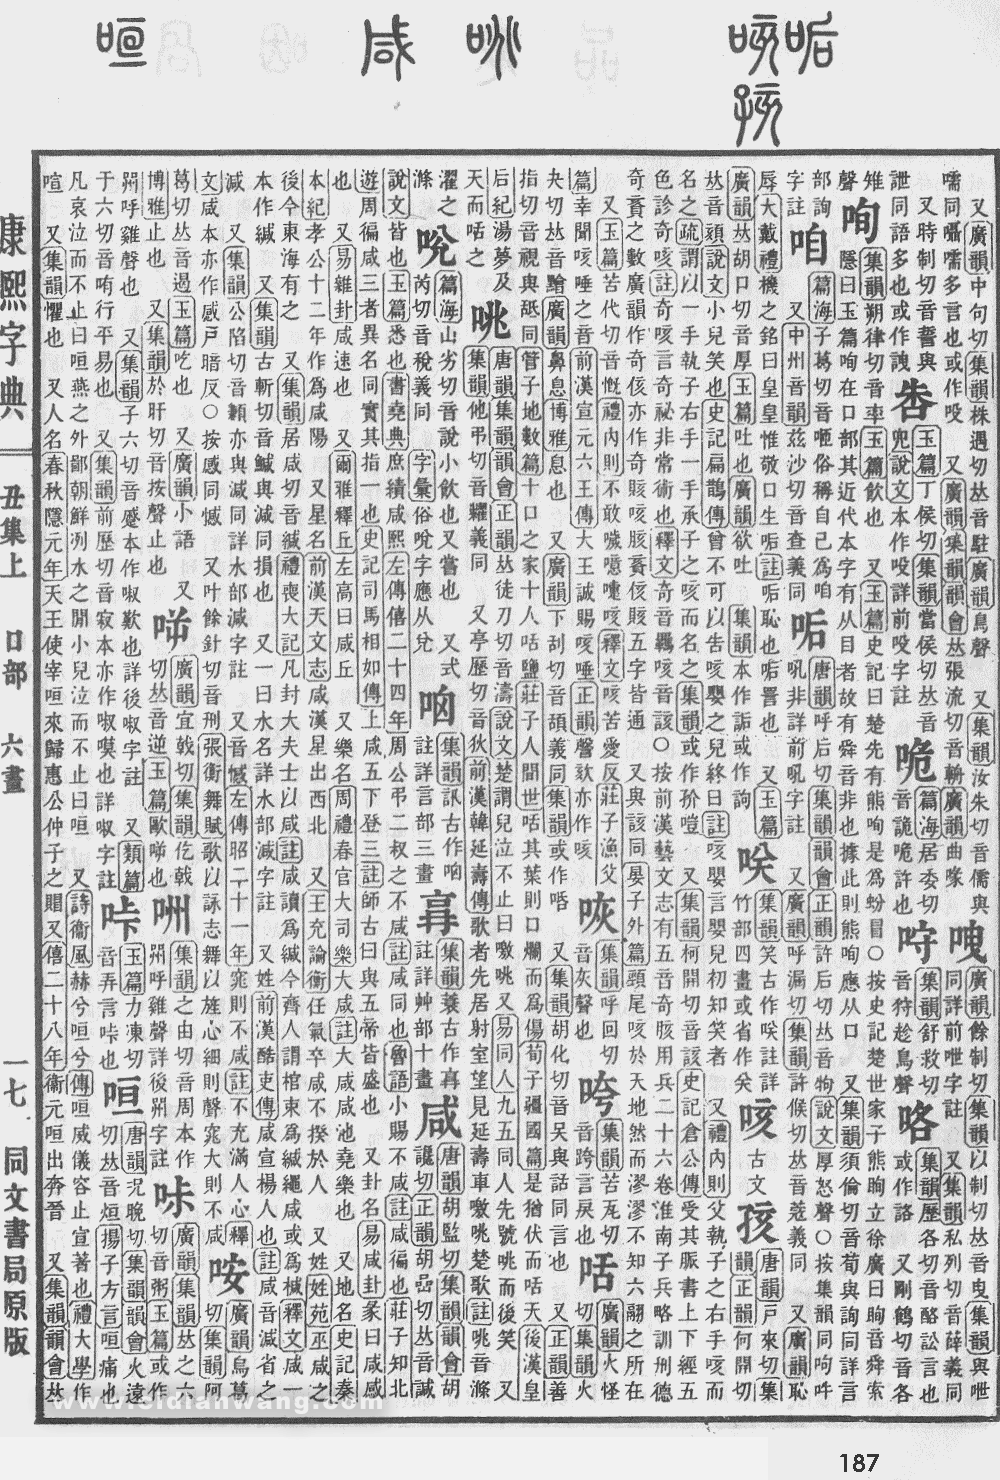 又廣韻中句切集韻株遇切𠀤音駐廣韻鳥聲 又集韻汝朱切音儒與
嚅同囁嚅多言也或作咬 又廣韻集韻韻會𠀤張流切音輈廣韻曲喙
廣韻餘制切集韻以制切𠀤音曳集韻與呭
同詳前呭字註 又集韻私列切音薛義同
又時制切音誓與
詍同語多也或作詍
玉篇丁侯切集韻當侯切𠀤音
兜說文本作吺詳前吺字註
篇海居委切
音詭咰許也
集韻舒救切
音狩鳥聲
咯
集韻歷各切音酪訟言也
或作詻 又剛鶴切音各
雉
聲
咰
集韻朔律切音率玉篇飲也 又玉篇史記曰楚先有熊咰是爲蚡冒○按史記楚世家子熊眴立徐廣曰眴音舜索
隱曰玉篇咰在口部其近代本字有从目者故有舜音非也據此則熊咰應从口 又集韻須倫切音荀與詢同詳言
部詢
字註
咱
篇海子葛切音咂俗稱自己爲咱
又中州音韻茲沙切音查義同
唐韻呼后切集韻韻會正韻許后切𠀤音吼說文厚怒聲○按集韻同呴吽
吼非詳前吼字註 又廣韻呼漏切集韻許候切𠀤音蔻義同 又廣韻恥
辱大戴禮機之銘曰皇皇惟敬口生㖃註㖃恥也㖃詈也 又玉篇
廣韻𠀤胡口切音厚玉篇吐也廣韻欲吐 集韻本作詬或作詢
㕭
集韻笑古作㕭註詳
竹部四畫或省作
咳
古
文
孩
唐韻戸來切集
韻正韻何開切
𠀤音頦說文小兒笑也史記扁鵲傳曾不可以告咳嬰之兒終日註咳嬰言嬰兒初知笑者 又禮內則父執子之右手咳而
名之疏謂以一手執子右手一手承子之咳而名之集韻或作 又集韻柯開切音該史記倉公傳受其脈書上下經五
色診奇咳註奇咳言奇祕非常術也釋文奇音羈咳音該○按前漢藝文志有五音奇胲用兵二十六卷淮南子兵略訓刑德
奇賌之數廣韻作奇侅亦作奇賅咳胲賌侅賅五字皆通 又與該同晏子外篇頭尾咳於天地然而漻漻不知六翮之所在
又玉篇苦代切音慨禮內則不敢噦噫嚏咳釋文咳苦愛反莊子漁父
篇幸聞咳唾之音前漢宣元六王傳大王誠賜咳唾正韻謦欬亦作咳
咴
集韻呼回切
音灰聲也
咵
集韻苦瓦切
音跨言戾也
咶
廣韻火怪
切集韻火
夬切𠀤音𧬨廣韻鼻息博雅息也 又廣韻下刮切音頢義同集韻或作𠯑 又集韻胡化切音㕦與話同言也 又正韻善
指切音視與舐同管子地數篇十口之家十人咶鹽莊子人閒世咶其葉則口爛而爲傷荀子彊國篇是猶伏而咶天後漢皇
后紀湯夢及
天而咶之
咷
唐韻集韻韻會正韻𠀤徒刀切音濤說文楚謂兒泣不止曰噭咷又易同人九五同人先號咷而後笑 又
集韻他弔切音糶義同 又亭歷切音狄前漢韓延壽傳歌者先居射室望見延壽車噭咷楚歌註咷音滌
濯之
滌
㕹
篇海山劣切音說小飲也又嘗也 又式
芮切音稅義同 字彙俗哾字應从兌
㕯
集韻訊古作㕯
註詳言部三畫
集韻蓑古作
註詳艸部十畫
咸
唐韻胡監切集韻韻會胡
讒切正韻胡嵒切𠀤音諴
說文皆也玉篇悉也書堯典庶績咸熙左傳僖二十四年周公弔二叔之不咸註咸同也魯語小賜不咸註咸徧也莊子知北
遊周徧咸三者異名同實其指一也史記司馬相如傳上咸五下登三註師古曰與五帝皆盛也 又卦名易咸卦彖曰咸感
也 又易雜卦咸速也 又爾雅釋丘左高曰咸丘 又樂名周禮春官大司樂大咸註大咸咸池堯樂也 又地名史記秦
本紀孝公十二年作爲咸陽 又星名前漢天文志咸漢星出西北 又王充論衡任氣卒咸不揆於人 又姓姓苑巫咸之
後今東海有之 又集韻居咸切音緘禮喪大記凡封大夫士以咸註咸讀爲緘今齊人謂棺束爲緘繩咸或爲椷釋文咸一
本作緘 又集韻古斬切音鹻與減同損也 又一曰水名詳水部減字註 又姓前漢酷吏傳咸宣楊人也註咸音減省之
減 又集韻公陷切音顑亦與減同詳水部減字註 又音憾左傳昭二十一年窕則不咸註不充滿人心釋
文咸本亦作感戸暗反○按感同憾 又叶餘針切音刑張衡舞賦歌以詠志舞以旌心細則聲窕大則不咸
咹
廣韻烏葛
切集韻阿
葛切𠀤音遏玉篇吃也 又廣韻小語 又
博雅止也 又集韻於肝切音按聲止也
㖕
廣韻宜戟切集韻仡戟
切𠀤音逆玉篇歐㖕也
咮
集韻之由切音周本作
喌呼雞聲詳後喌字註
廣韻集韻𠀤之六
切音粥玉篇或作
喌呼雞聲也 又集韻子六切音蹙本作㖅歎也詳後㖅字註 又類篇
于六切音哊行平易也 又集韻前歷切音寂本亦作㖅嘆也詳㖅字註
咔
玉篇力凍切
音弄言咔也
咺
唐韻況晚切集韻韻會火遠
切𠀤音烜揚子方言咺痛也
凡哀泣而不止曰咺燕之外鄙朝鮮洌水之閒小兒泣而不止曰咺 又詩衞風赫兮咺兮傳咺威儀容止宣著也禮大學作
喧 又集韻懼也 又人名春秋隱元年天王使宰咺來歸惠公仲子之賵又僖二十八年衞元咺出奔晉 又集韻韻會𠀤
康熙字典
丑集上 口部 六畫
一七
同文書局原版
187